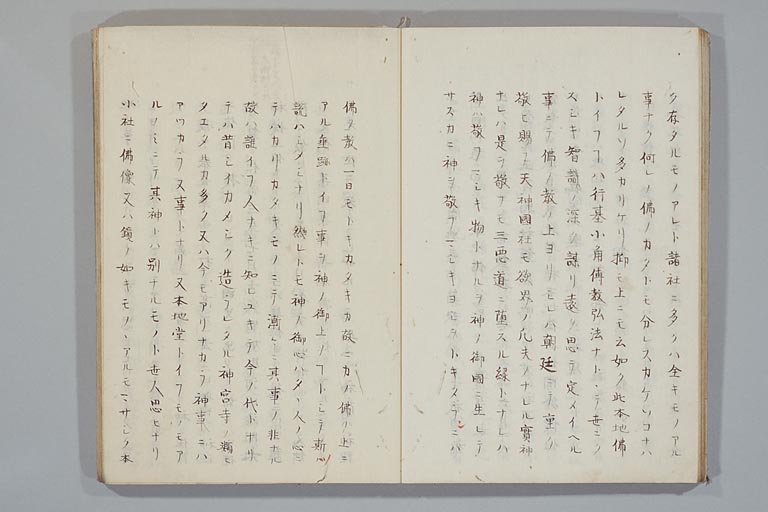 ク存タルモノアレト諸社ニ多クハ全キモノアル
事ナク何レノ佛ノカタトモ分レスカケソコナハ
レタルソ多カリケリ抑上ニモ云如ク此本地佛
トイフフハ行基小角傳教弘法ナト
智 深ク謀リ遠ク思テ定メイヘル
事ニテ佛ノ教ノ上ヨリ ハ朝廷
敬ヒ賜フ天神國社モ欲界ノ凡夫ノナレル實神
ナレハ是ヲ敬フモ三悪道ニ堕スル縁トナレハ
神ハ敬フマシキ物トナル ヲ神ノ御國ニ生レテ
サスカニ神ヲ敬フマシキヨシヲトキ ニハ
佛ノ教ハ一日モトキカタキカ故ニカノ佛ノ上ニ
アル垂跡トイフ事ヲ神ノ御上ノフトシテ斯
説ハシメシナリ然レトモ神ノ御心ハタ人ノ
テハカリカタキモノニテ漸ニ其事ノ非ナル
故ハ誰イフ人ナキニ知レユキテ今ノ代トナリ
テハ昔シイカメシク造ラレタル神宮寺ノ類モ
タエタルカ多ク又ハ今モアリナカラ神事ニハ
アツカラヌ事トナリ又本地堂トイフモノモア
ルノミニテ其神トハ別ナルモノト世人思ヒナリ
小社ニ佛像又ハ鏡ノ如キモノアルモマサシク本